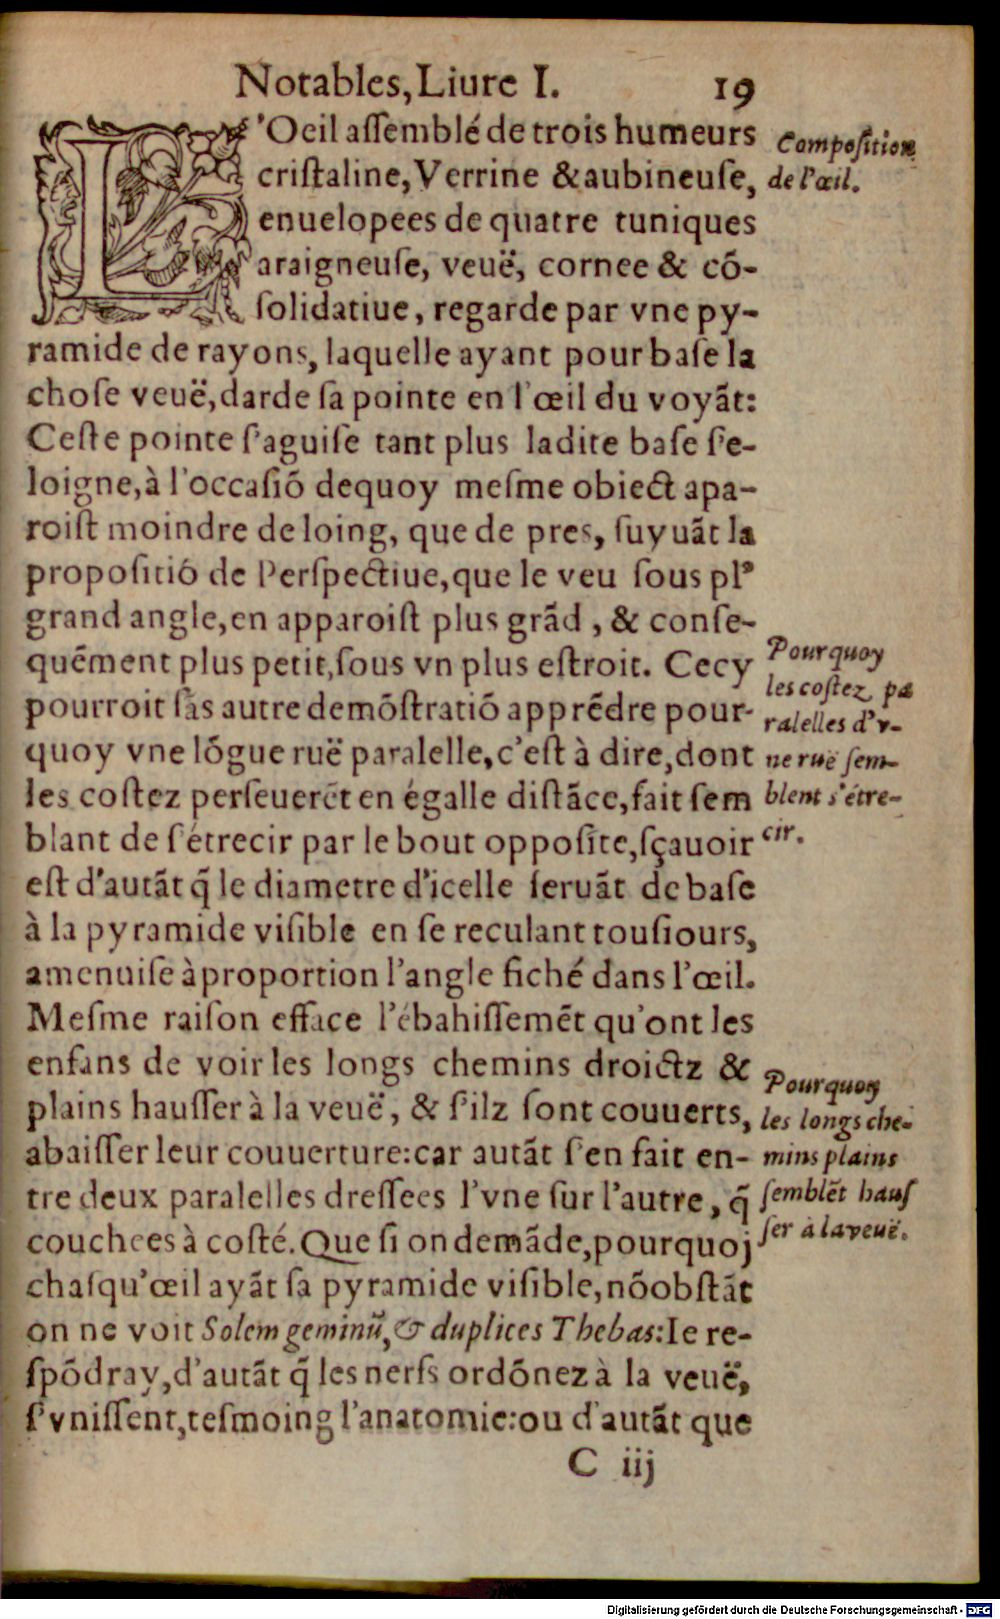 Notables, Liure I. 19
L'Oeil aſſemblé de trois humeurs
criſtaline, Verrine & aubineuſe,
enuelopees de quatre tuniques
araigneuſe, veuë, cornee & cõ-
ſolidatiue, regarde par vne py-
ramide de rayons, laquelle ayant pour baſe la
choſe veuë, darde ſa pointe en l'œil du voyãt:
Ceſte pointe ſ'aguiſe tant plus ladite baſe ſ'e-
loigne, à l'occaſiõ dequoy meſme obiect apa-
roiſt moindre de loing, que de pres, ſuyuãt la
propoſitiõ de Perſpectiue, que le veu ſous plꝰ
grand angle, en apparoiſt plus grãd, & conſe-
quẽment plus petit, ſous vn plus eſtroit. Cecy
pourroit ſãs autre demõſtratiõ apprẽdre pour-
quoy vne lõgue ruë paralelle, c'eſt à dire, dont
les coſtez perſeuerẽt en égalle diſtãce, fait ſem
blant de ſ'étrecir par le bout oppoſite, ſçauoir
eſt d'autãt q̃ le diametre d'icelle ſeruãt de baſe
à la pyramide viſible en ſe reculant touſiours,
amenuiſe à proportion l'angle fiché dans l'œil.
Meſme raiſon efface l'ébahiſſemẽt qu'ont les
enfans de voir les longs chemins droictz &
plains hauſſer à la veuë, & ſ'ilz ſont couuerts,
abaiſſer leur couuerture: car autãt ſ'en fait en-
tre deux paralelles dreſſees l'vne ſur l'autre, q̃
couchees à coſté. Que ſi on demãde, pourquoj
chaſqu'œil ayãt ſa pyramide viſible, nõobſtãt
on ne voit Solem geminũ, & duplices Thebas: Ie re-
ſpõdray, d'autãt q̃ les nerfs ordõnez à la veuë,
ſ'vniſſent, teſmoing l'anatomie: ou d'autãt que
C iij
Compoſition
de l'œil.
Pourquoy
les coſtez pa
ralelles d'v-
ne ruë ſem-
blent s'étre-
cir.
Pourquoy
les longs che-
mins plains
ſemblẽt hauſ
ſer à la veuë.
Digitalisierung gefördert durch die Deutsche Forschungsgemeinschaft - DFG